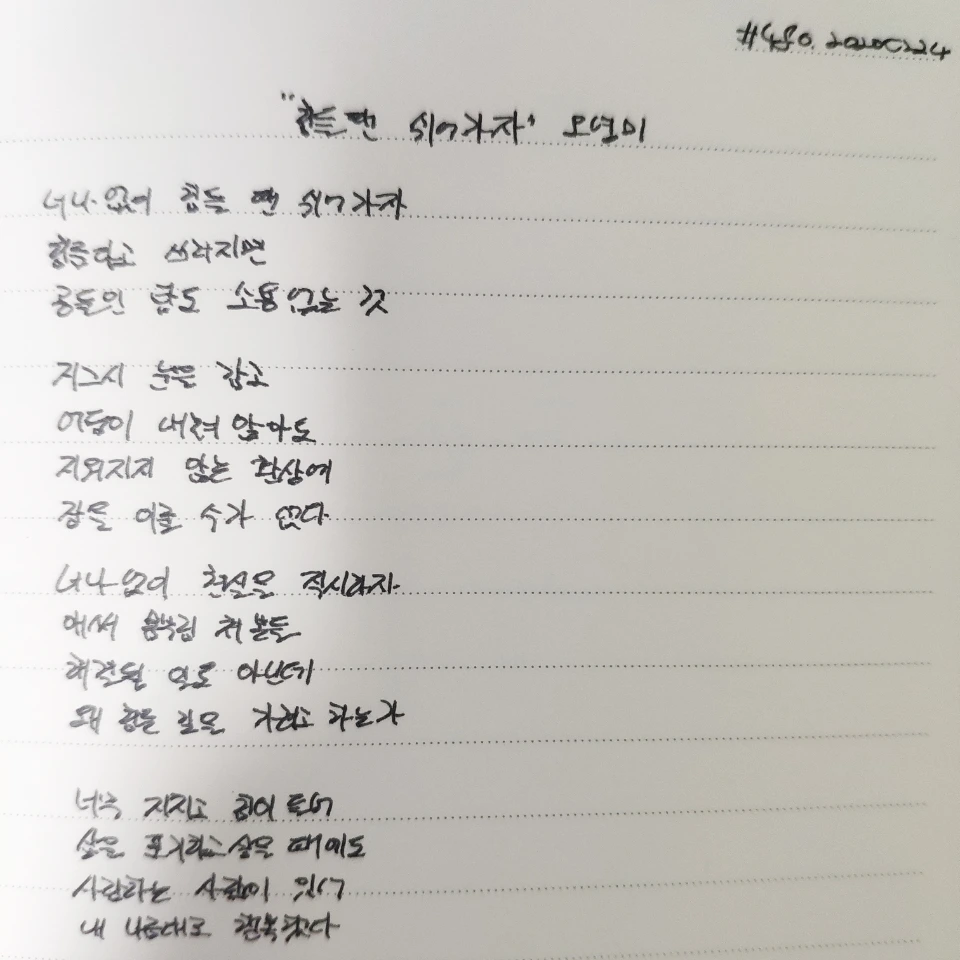 "힘들 땐 쉬어가자" 오영미
너나 없이 힘들 땐 쉬어가자
힘들다고 쓰러지면
공들인 탑도 소용없는 것
지그시 눈을 감고
어둠이 내려 앉아도
지워지지 않는 환상에
잠을 이룰 수가 없다
너나 없이 현실을 직시하자
애써 몸부림 쳐 본들
해결될 일도 아닌데
왜 힘든 길을 가려고 하는가
너무 지치고 힘이 들어
삶을 포기하고 싶을 때에도
사랑하는 사람이 있어
내 나름대로 행복했다